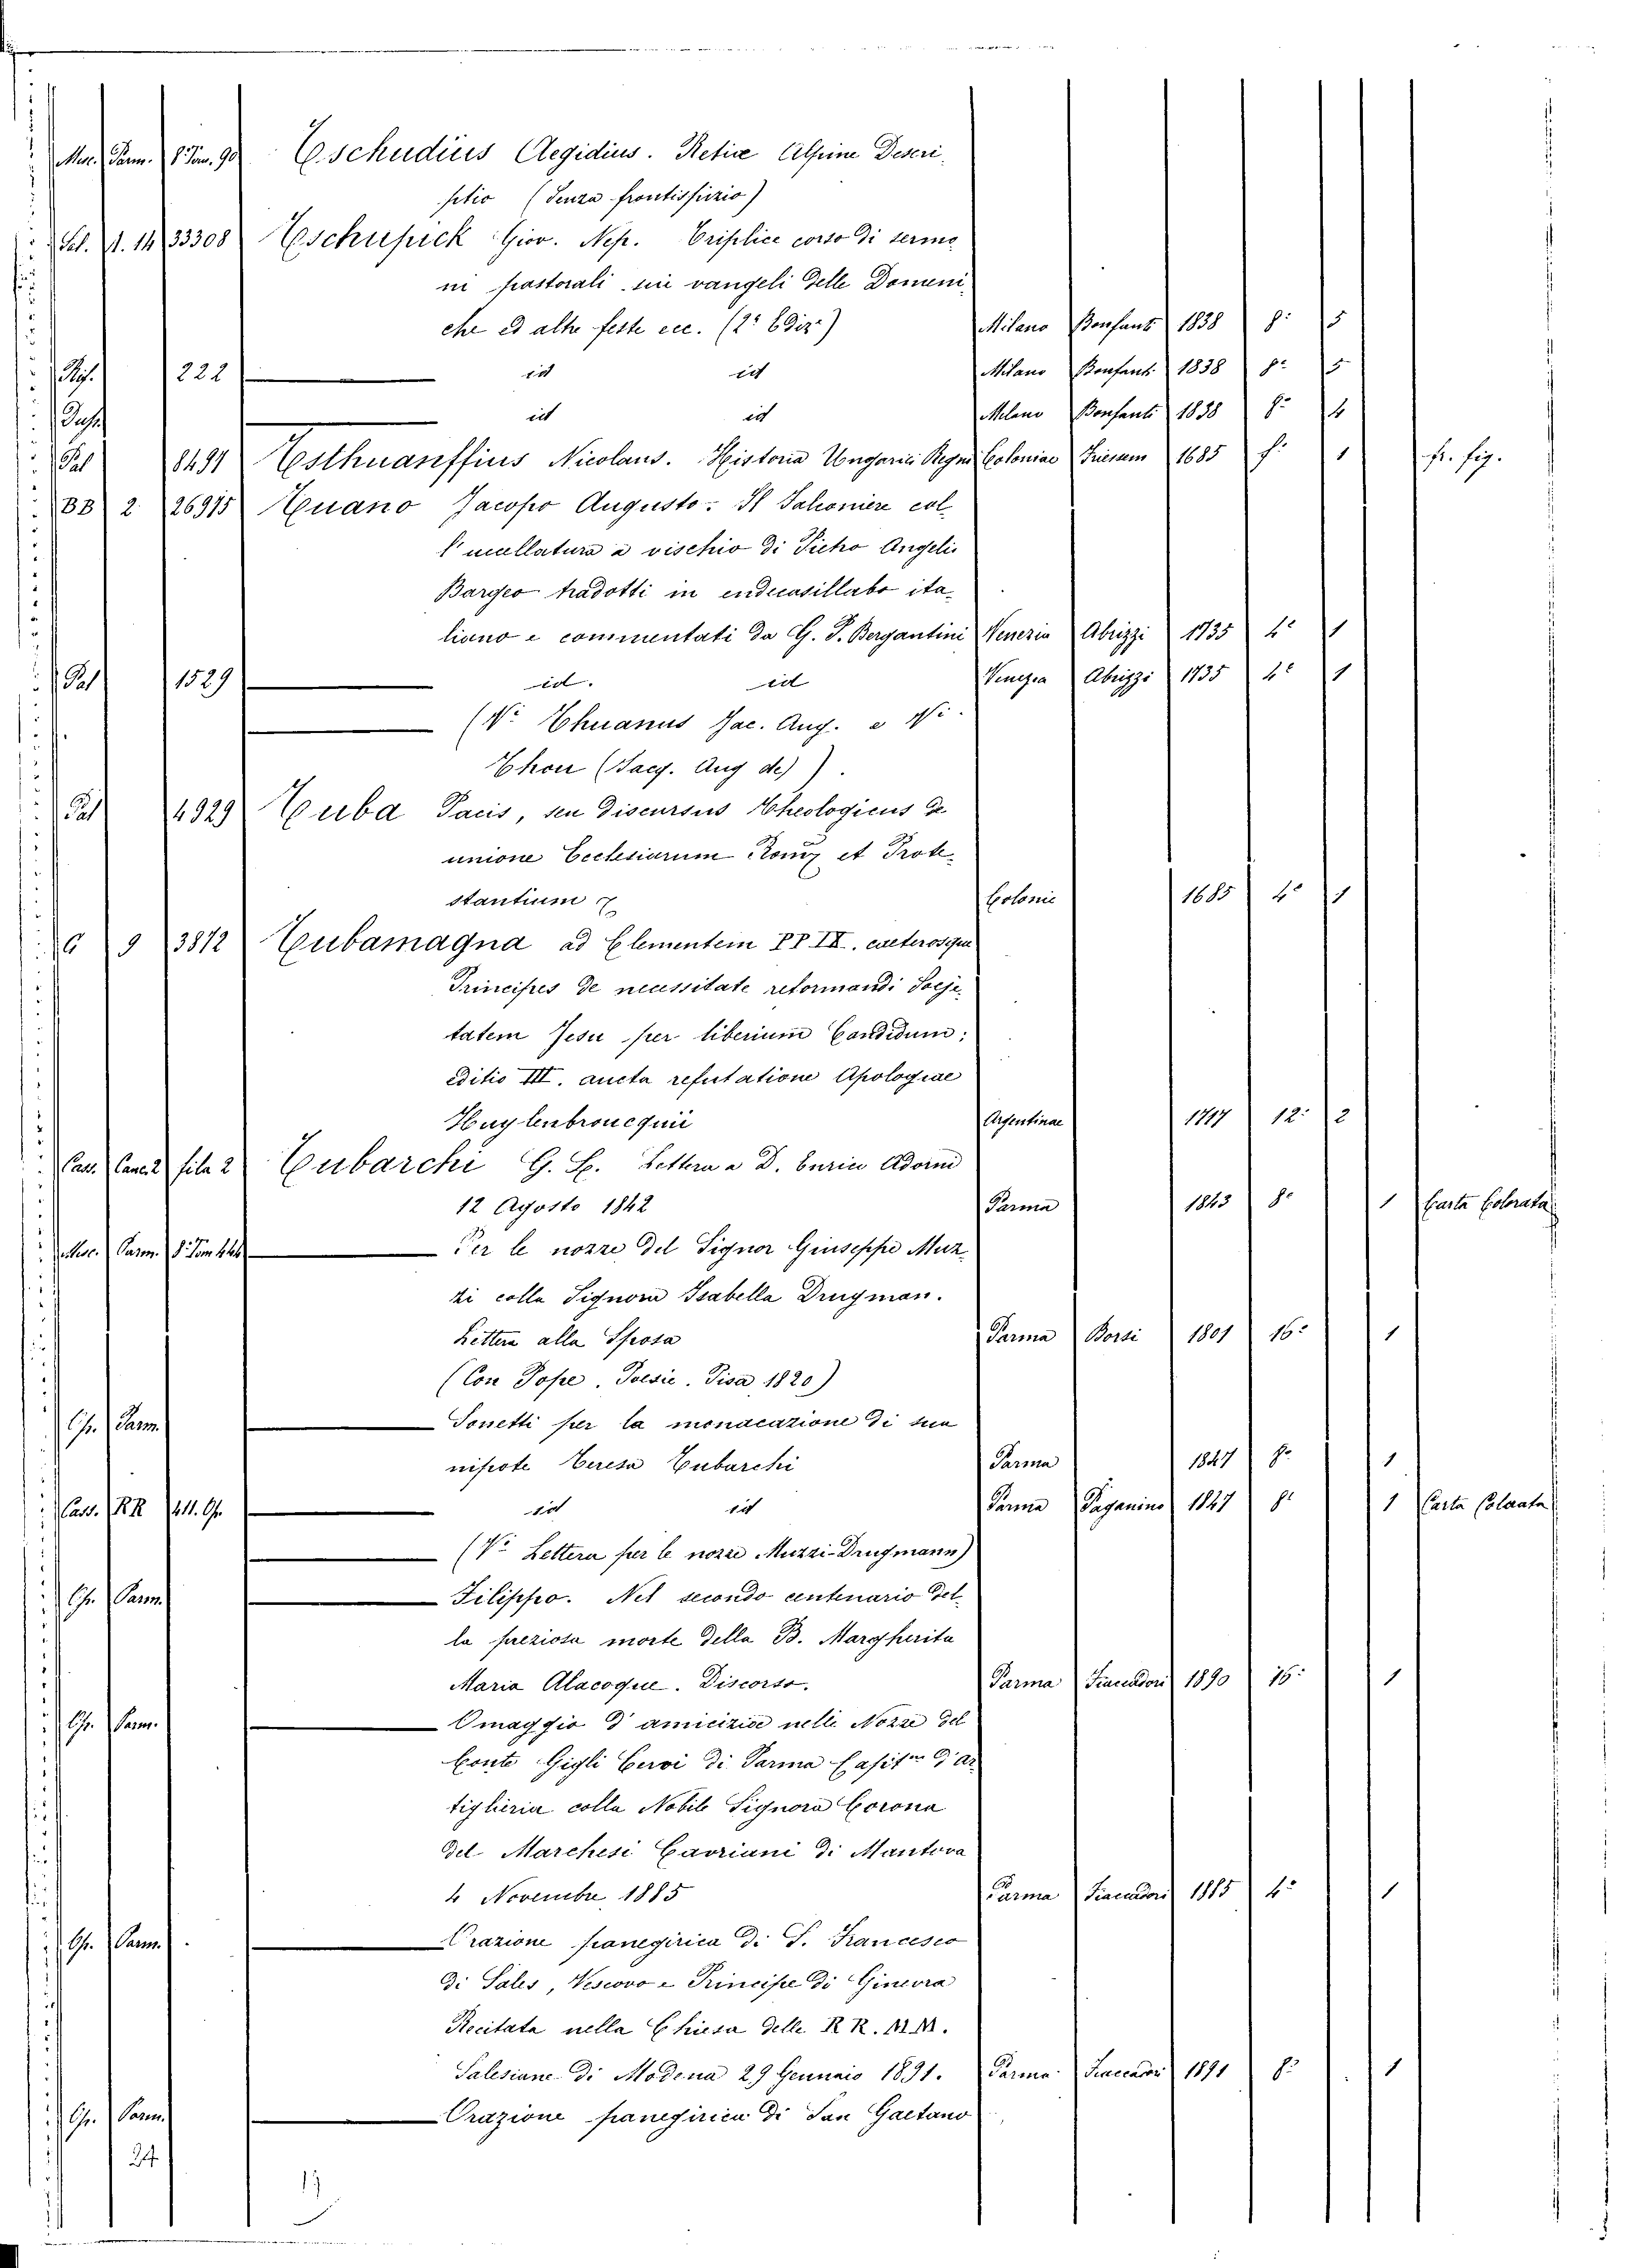 Misc. Parm. 8° Tom. 90 Tschudius Aegidius. Retiæ Alpinæ Descri-
ptio (Senza frontispizio)
Sal. N. 14 33308 Tschupick Giov. Nep. Triplice corso di sermo
ni pastorali sui vangeli delle Domeni
che ed altre feste ecc. (2ª Ediz.) Milano Bonfanti 1838 8° 5
222 id id Milano Bonfanti 1838 8° 5
id id Milano Bonfanti 1838 8° 4
Pal 8491 Tsthuanffius Nicolaus. Historia Ungarici Regni Coloniae Friesem 1685 f. 1 fr. fig.
BB 2 26975 Tuano Jacopo Augusto. Il Falconiere col
l'uccellatura a vischio di Pietro Angelio
Bargeo tradotti in endecasillabo ita
liano e commentati da G. P. Bergantini Venezia Albrizzi 1735 4° 1
Pal 1529 id. id Venezia Albrizzi 1735 4° 1
(V. Thuanus Jac. Aug. e Vi
Thou (Jacq. Aug de) ).
Pal 4929 Tuba Pacis, seu discursus Theologicus de
unione Ecclesiarum Rom. et Prote
stantium Colonie 1685 4° 1
G 9 3872 Tubamagna ad Clementem PP. IX. caeterosque
Principes de necessitate reformandi Socje
tatem Jesu per liberium Candidum;
editio III. aucta refutatione Apologiae
Huylenbroucquii Argentinae 1717 12° 2
Cass. Canc. 2 fila 2 Tubarchi G. B. Lettera a D. Enrico Adorni
12 Agosto 1842 Parma 1843 8° 1 Carta Colorata
Misc. Parm. 8° Tom 444 Per le nozze del Signor Giuseppe Muz
zi colla Signora Isabella Drugman.
Lettera alla Sposa Parma Borsi 1801 16° 1
(Con Pope. Poesie. Pisa 1820)
Op. Parm. Sonetti per la monacazione di sua
nipote Teresa Tubarchi Parma 1827 8° 1
Cass. RR 411. Op. id id Parma Paganino 1827 8° 1 Carta Colorata
(V. Lettera per le nozze Muzzi-Drugmann)
Op. Parm. Filippo. Nel secondo centenario del
la preziosa morte della B. Margherita
Maria Alacoque. Discorso. Parma Fiaccadori 1890 16° 1
Op. Parm. Omaggio d'amicizia nelle Nozze del
Conte Gigli Cervi di Parma Capit. d'ar
tiglieria colla Nobile Signora Corona
del Marchesi Cavriani di Mantova
4 Novembre 1885 Parma Fiaccadori 1885 4° 1
Op. Parm. Orazione panegirica di S. Francesco
di Sales, Vescovo e Principe di Ginevra
Recitata nella Chiesa delle RR. MM.
Salesiane di Modena 29 Gennaio 1891. Parma Fiaccadori 1891 8° 1
Op. Parm. Orazione panegirica di San Gaetano
24
17